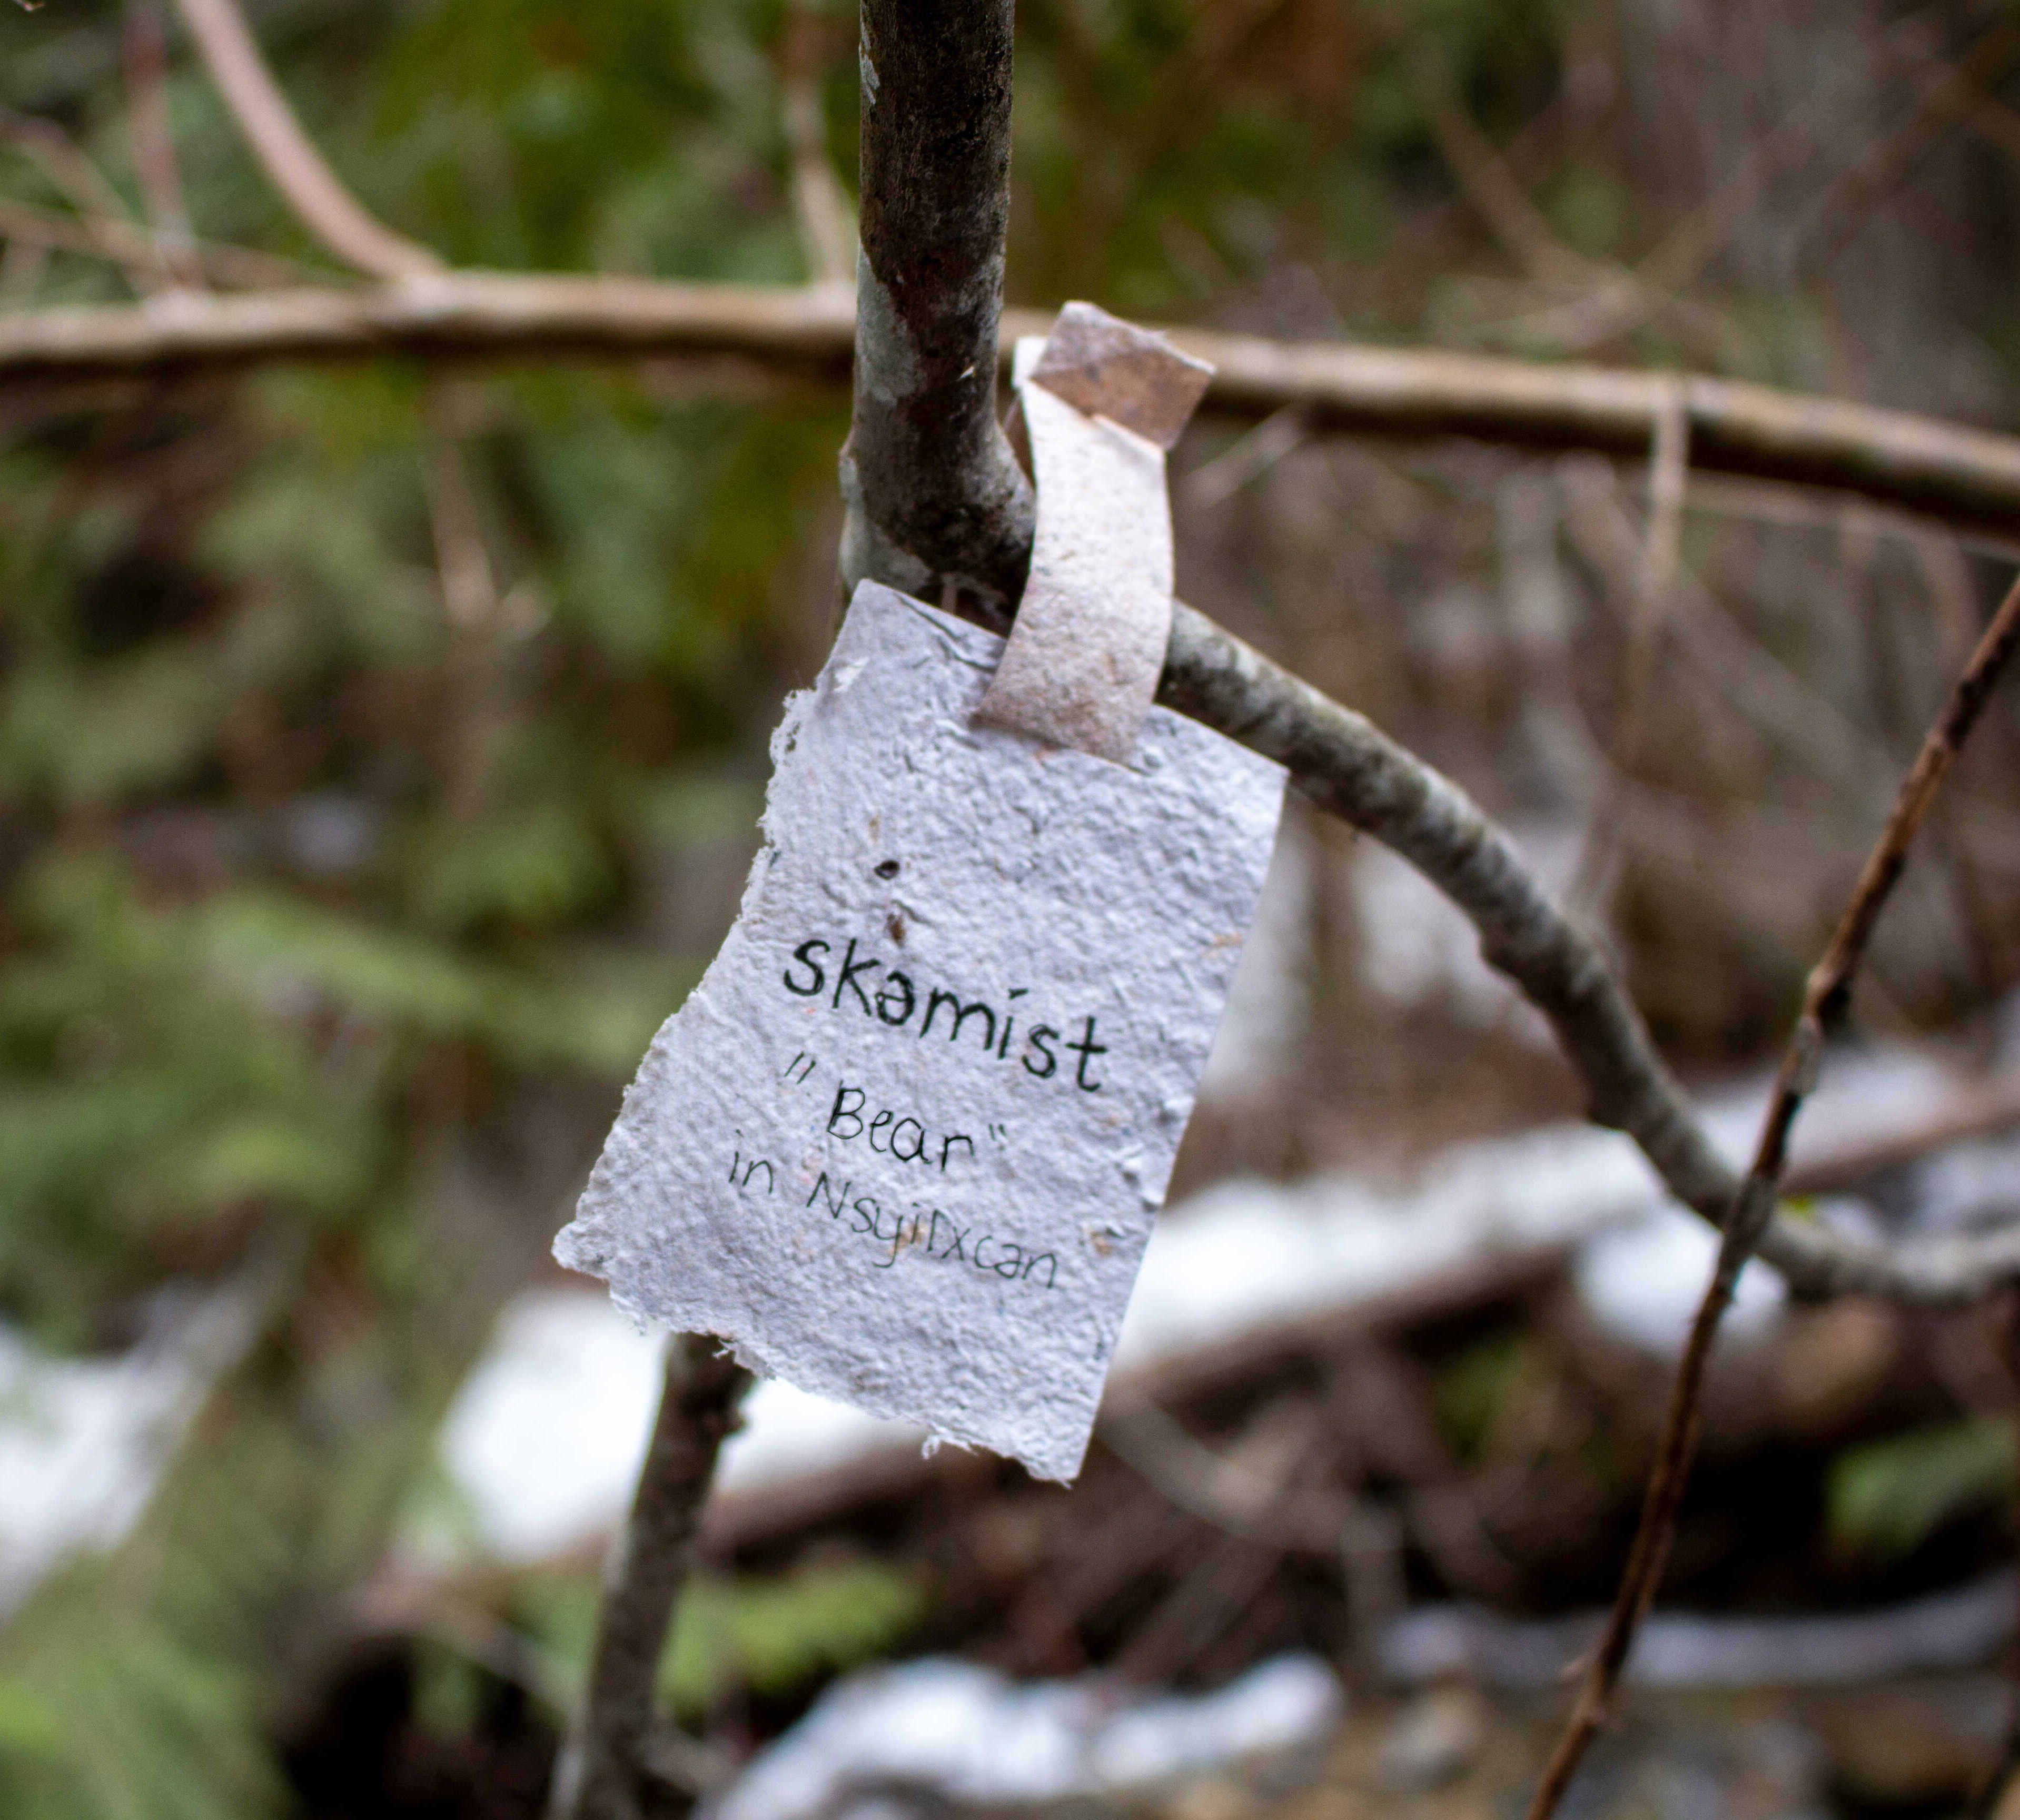 skəmíst
"Bear"
in Nsyilxcən